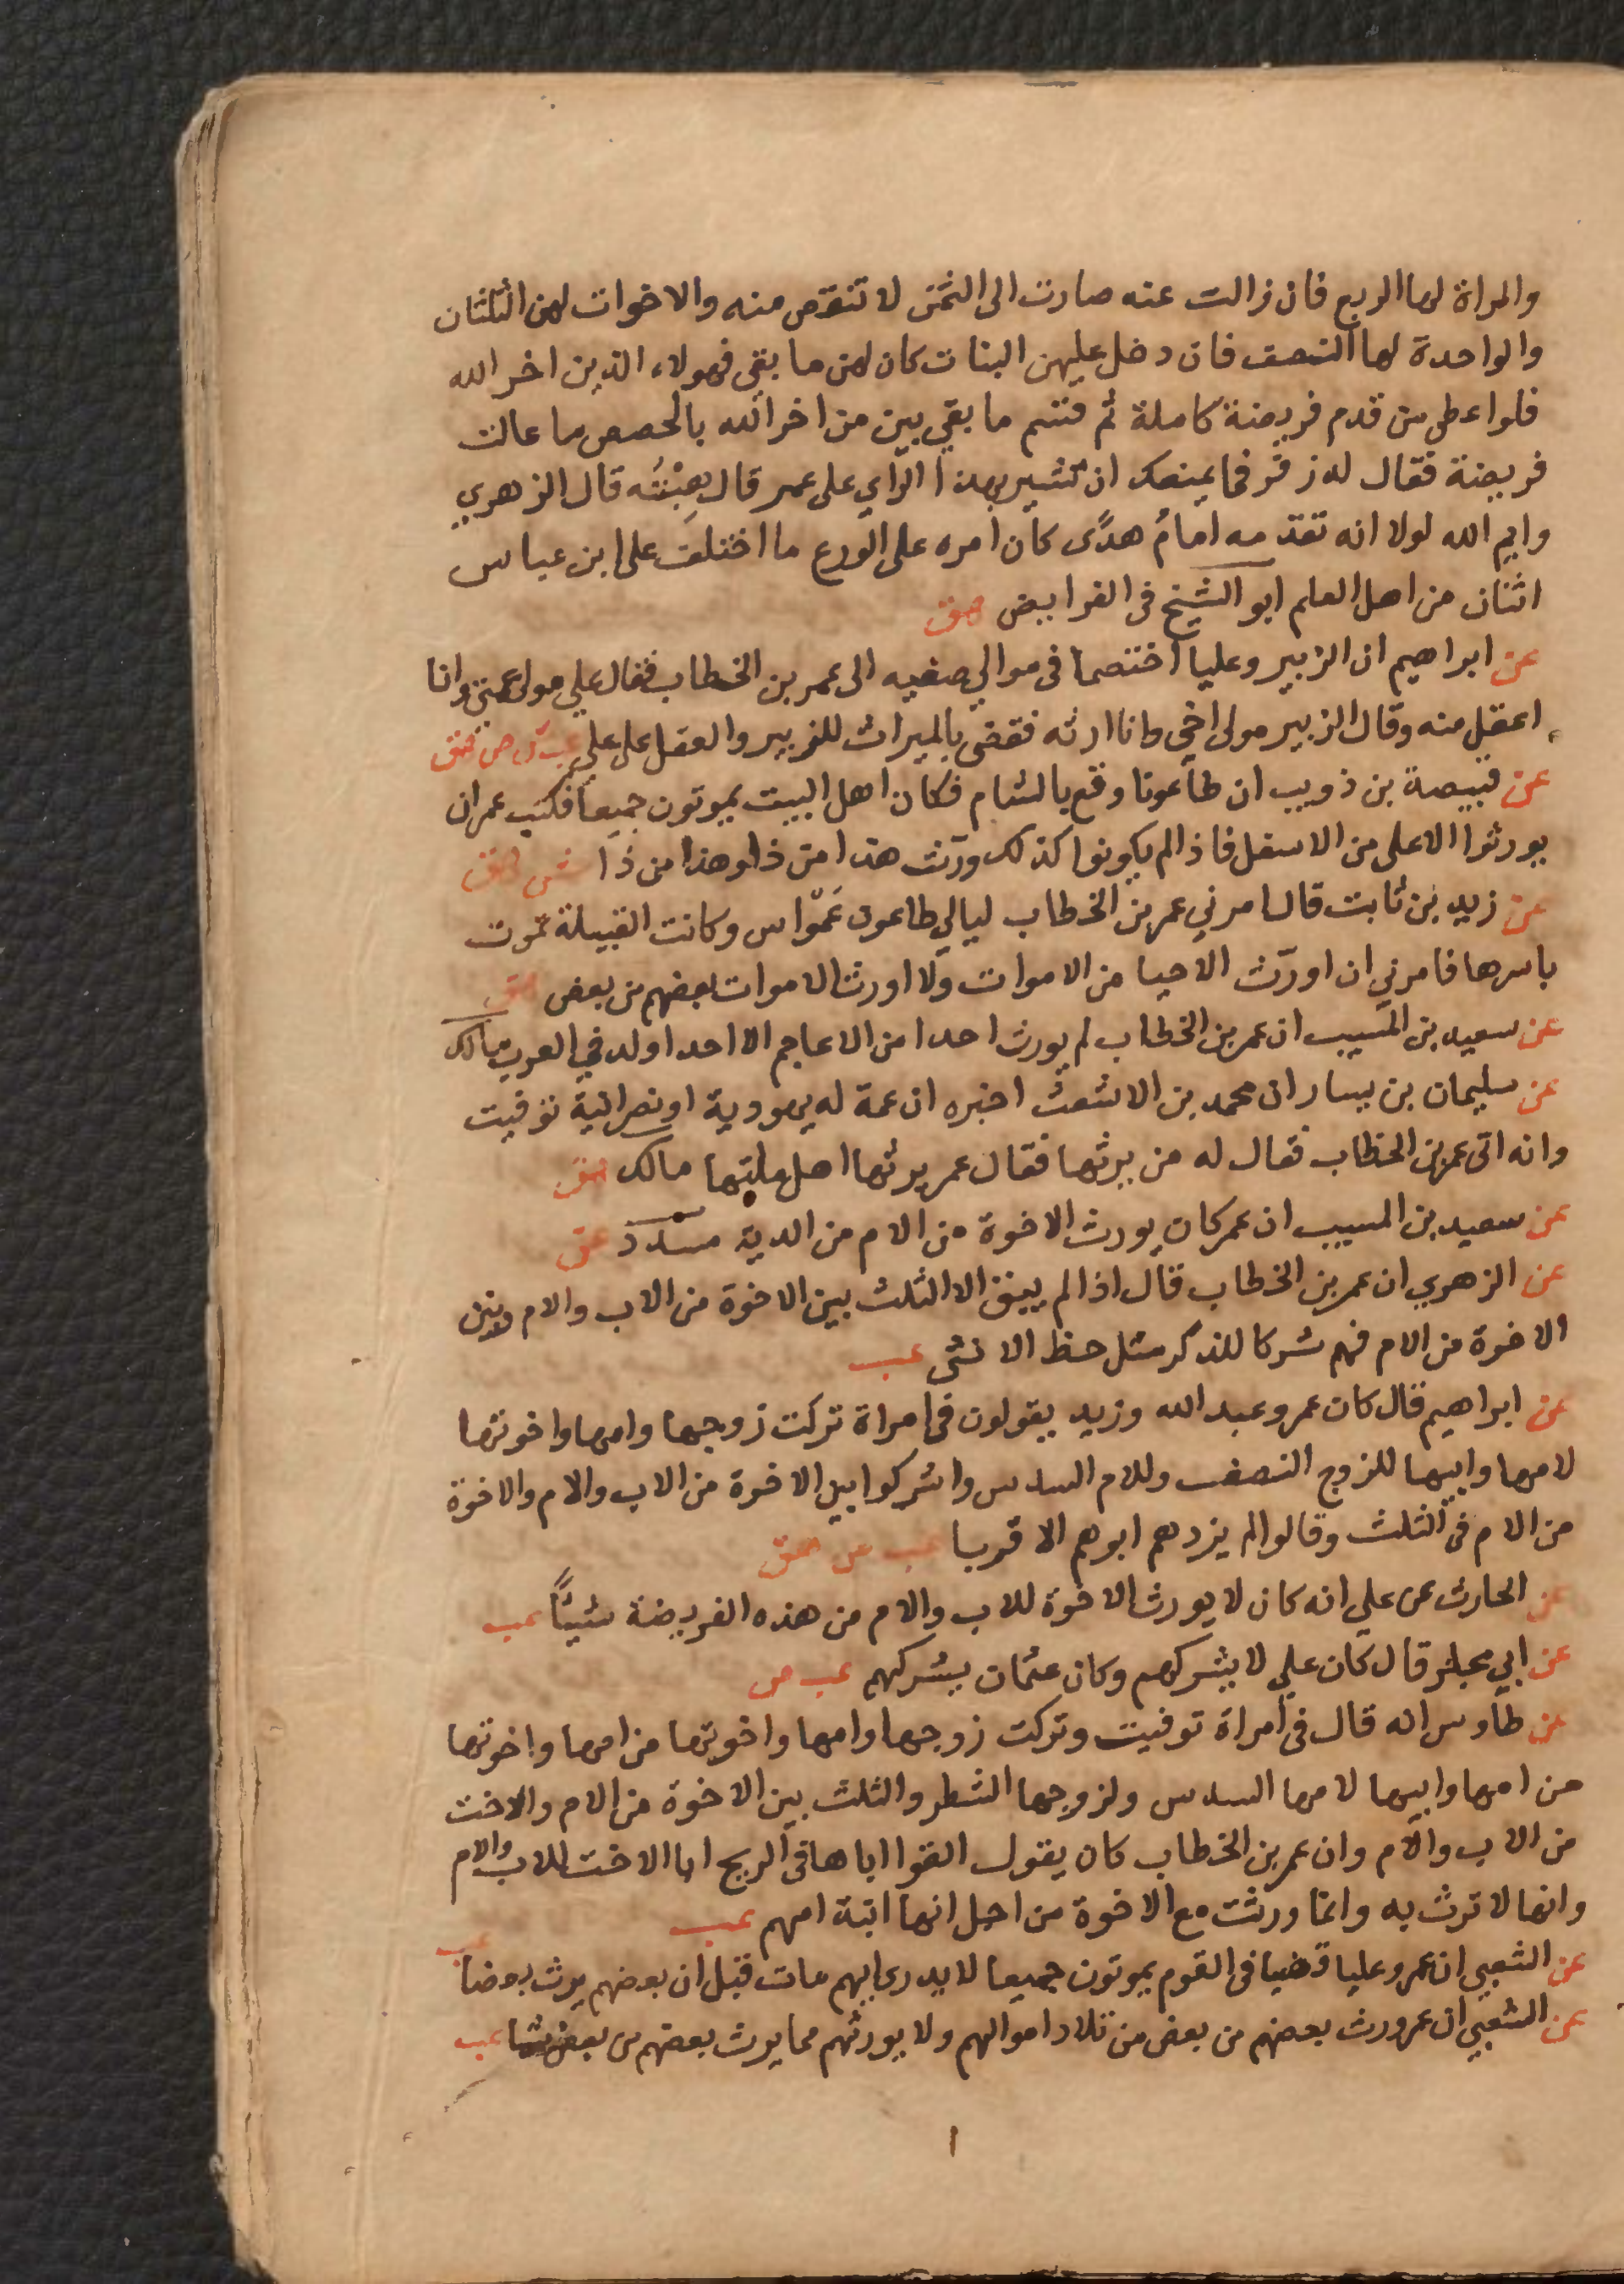 والمراة لها الربع فان زالت عنه صارت الى الثمن لا تنقص منه والاخوات لهن الثلثان
والواحدة لها النصف فان دخل عليهن البنات كان لهن ما بقي فهولاء الذين اخر الله
فلو اعطى من قدم فريضة كاملة ثم قسم ما بقي بين من اخر الله بالحصص ما عالت
فريضة فقال له زفر فما يمنعك ان تشير بهذا الراي على عمر قال هِبْتُه قال الزهري
وايم الله لولا انه تقدمه امامُ هدًى كان امره على الورع ما اختلف على ابن عباس
اثنان من اهل العلم ابو الشيخ في الفرايض هق
عن ابراهيم ان الزبير وعليا اختصما في موالي صفيه الى عمر بن الخطاب فقال علي مولى عمتي وانا
اعقل منه وقال الزبير مولى اخي وانا ارثه فقضى بالميراث للزبير والعقل على علي عب ص هق
عن قبيصة بن ذويب ان طاعونا وقع بالشام فكان اهل البيت يموتون جميعا فكتب عمر ان
يورثوا الاعلى من الاسفل فاذا لم يكونوا كذلك ورّث هذا من ذا وهذا من ذا ش هق
عن زيد بن ثابت قال امرني عمر بن الخطاب ليالي طاعون عَمَواس وكانت القبيلة تموت
باسرها فامرني ان اورّث الاحيا من الاموات ولا اورث الاموات بعضهم من بعض هق
عن سعيد بن المسيب ان عمر بن الخطاب لم يورث احدا من الاعاجم الا احدا ولد في العرب مالك
عن سليمان بن يسار ان محمد بن الاشعث اخبره ان عمة له يهودية او نصرانية توفيت
وانه اتى عمر بن الخطاب فقال له من يرثها فقال عمر يرثها اهل ملتها مالك هق
عن سعيد بن المسيب ان عمر كان يورث الاخوة من الام من الدية مسدد عق
عن الزهري ان عمر بن الخطاب قال اذا لم يبق الا الثلث بين الاخوة من الاب والام وبين
الاخوة من الام فهم شركا للذكر مثل حظ الانثى عب
عن ابراهيم قال كان عمر وعبد الله وزيد يقولون في امراة تركت زوجها وامها واخوتها
لامها وابيها للزوج النصف وللام السدس واشركوا بين الاخوة من الاب والام والاخوة
من الام في الثلث وقالوا لم يزدهم ابوهم الا قربا عب ص هق
عن الحارث عن علي انه كان لا يورث الاخوة للاب والام من هذه الفريضة شيئًا عب
عن ابي مجلز قال كان علي لا يشركهم وكان عثمان يشركهم عب ص
عن طاوس انه قال في امراة توفيت وتركت زوجها وامها واخوتها من امها واخوتها
من امها وابيها لامها السدس ولزوجها الشطر والثلث بين الاخوة من الام والاخت
من الاب والام وان عمر بن الخطاب كان يقول القوا اباها في الريح اما الاخت للاب والام
وانها لا ترث به وانما ورثت مع الاخوة من اجل انها ابنة امهم عب
عن الشعبي ان عمر وعليا قضيا في القوم يموتون جميعا لا يدرى ايهم مات قبل ان بعضهم يرث بعضا عب
عن الشعبي ان عمر ورث بعضهم من بعض من تلاد اموالهم ولا يورثهم مما يرث بعضهم من بعض شيا عب